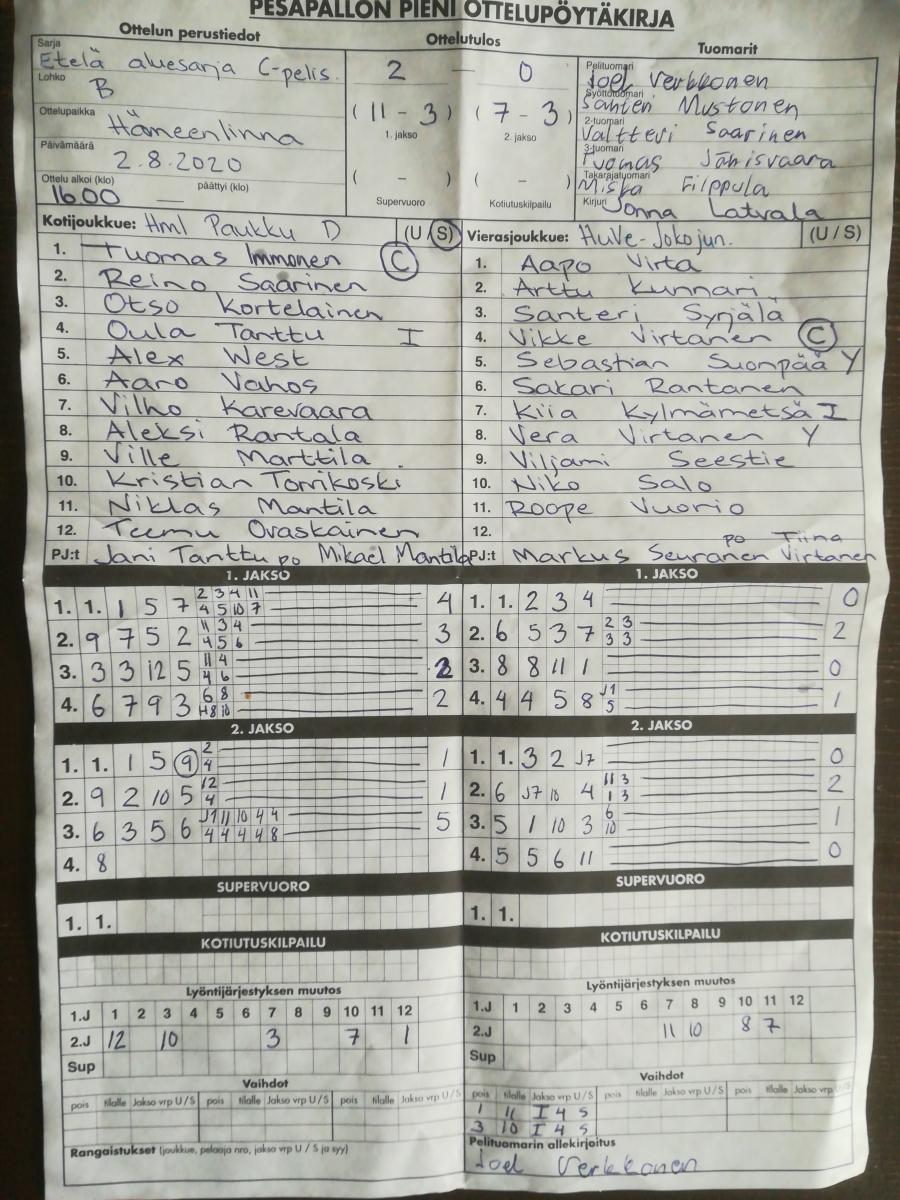 PESÄPALLON PIENI OTTELUPÖYTÄKIRJA
Ottelun perustiedot
Ottelutulos
Tuomarit
Sarja
Etelä aluesarja C-pelis.
Lohko
B
Ottelupaikka
Hämeenlinna
Päivämäärä
2.8.2020
Ottelu alkoi (klo) päättyi (klo)
16.00 —
2 — 0
(11 - 3) (7 - 3)
1. jakso 2. jakso
( - ) ( - )
Supervuoro Kotiutuskilpailu
Pelituomari
Joel Verkkonen
Syöttötuomari
Santeri Mustonen
2-tuomari
Valtteri Saarinen
3-tuomari
Tuomas Jänisvaara
Takarajatuomari
Miska Filppula
Kirjuri
Jonna Latvala
Kotijoukkue: Hml Paukku D (U / S)
1. Tuomas Immonen C
2. Reino Saarinen
3. Otso Kortelainen
4. Oula Tanttu I
5. Alex West
6. Aaro Vahos
7. Vilho Karevaara
8. Aleksi Rantala
9. Ville Marttila
10. Kristian Torrikoski
11. Niklas Mantila
12. Teemu Ovaskainen
PJ:t Jani Tanttu po Mikael Mantila
Vierasjoukkue: HuVe-Joko jun. (U / S)
1. Aapo Virta
2. Arttu Kunnari
3. Santeri Syrjälä
4. Vikke Virtanen C
5. Sebastian Suonpää Y
6. Sakari Rantanen
7. Kiia Kylmämetsä I
8. Vera Virtanen Y
9. Viljami Seestie
10. Niko Salo
11. Roope Vuorio
12.
po Tiina
PJ:t Markus Seuranen Virtanen
1. JAKSO
2 3 4 11
1. 1. 1 5 7 4 5 10 7 4
11 3 4
2. 9 7 5 2 4 5 6 3
11 4
3. 3 3 12 5 4 6 2
6 8
4. 6 7 9 3 H8 10 2
2. JAKSO
2
1. 1. 1 5 9 4 1
12
2. 9 2 10 5 4 1
J1 11 10 4 4
3. 6 3 5 6 4 4 4 4 8 5
4. 8
SUPERVUORO
1. 1.
KOTIUTUSKILPAILU
Lyöntijärjestyksen muutos
1.J 1 2 3 4 5 6 7 8 9 10 11 12
2.J 12 10 3 7 1
Sup
Vaihdot
pois tilalle Jakso vrp U / S pois tilalle Jakso vrp U / S pois tilalle Jakso vrp U / S
Rangaistukset (joukkue, pelaaja nro, jakso vrp U / S ja syy)
1. JAKSO
1. 1. 2 3 4 0
2 3
2. 6 5 3 7 3 3 2
3. 8 8 11 1 0
J1
4. 4 4 5 8 5 1
2. JAKSO
1. 1. 3 2 J7 0
11 3
2. 6 J7 10 4 1 3 2
6
3. 5 1 10 3 10 1
4. 5 5 6 11 0
SUPERVUORO
1. 1.
KOTIUTUSKILPAILU
Lyöntijärjestyksen muutos
1.J 1 2 3 4 5 6 7 8 9 10 11 12
2.J 11 10 8 7
Sup
Vaihdot
pois tilalle Jakso vrp U / S pois tilalle Jakso vrp U / S pois tilalle Jakso vrp U / S
1 11 I 4 S
3 10 I 4 S
Pelituomarin allekirjoitus
Joel Verkkonen